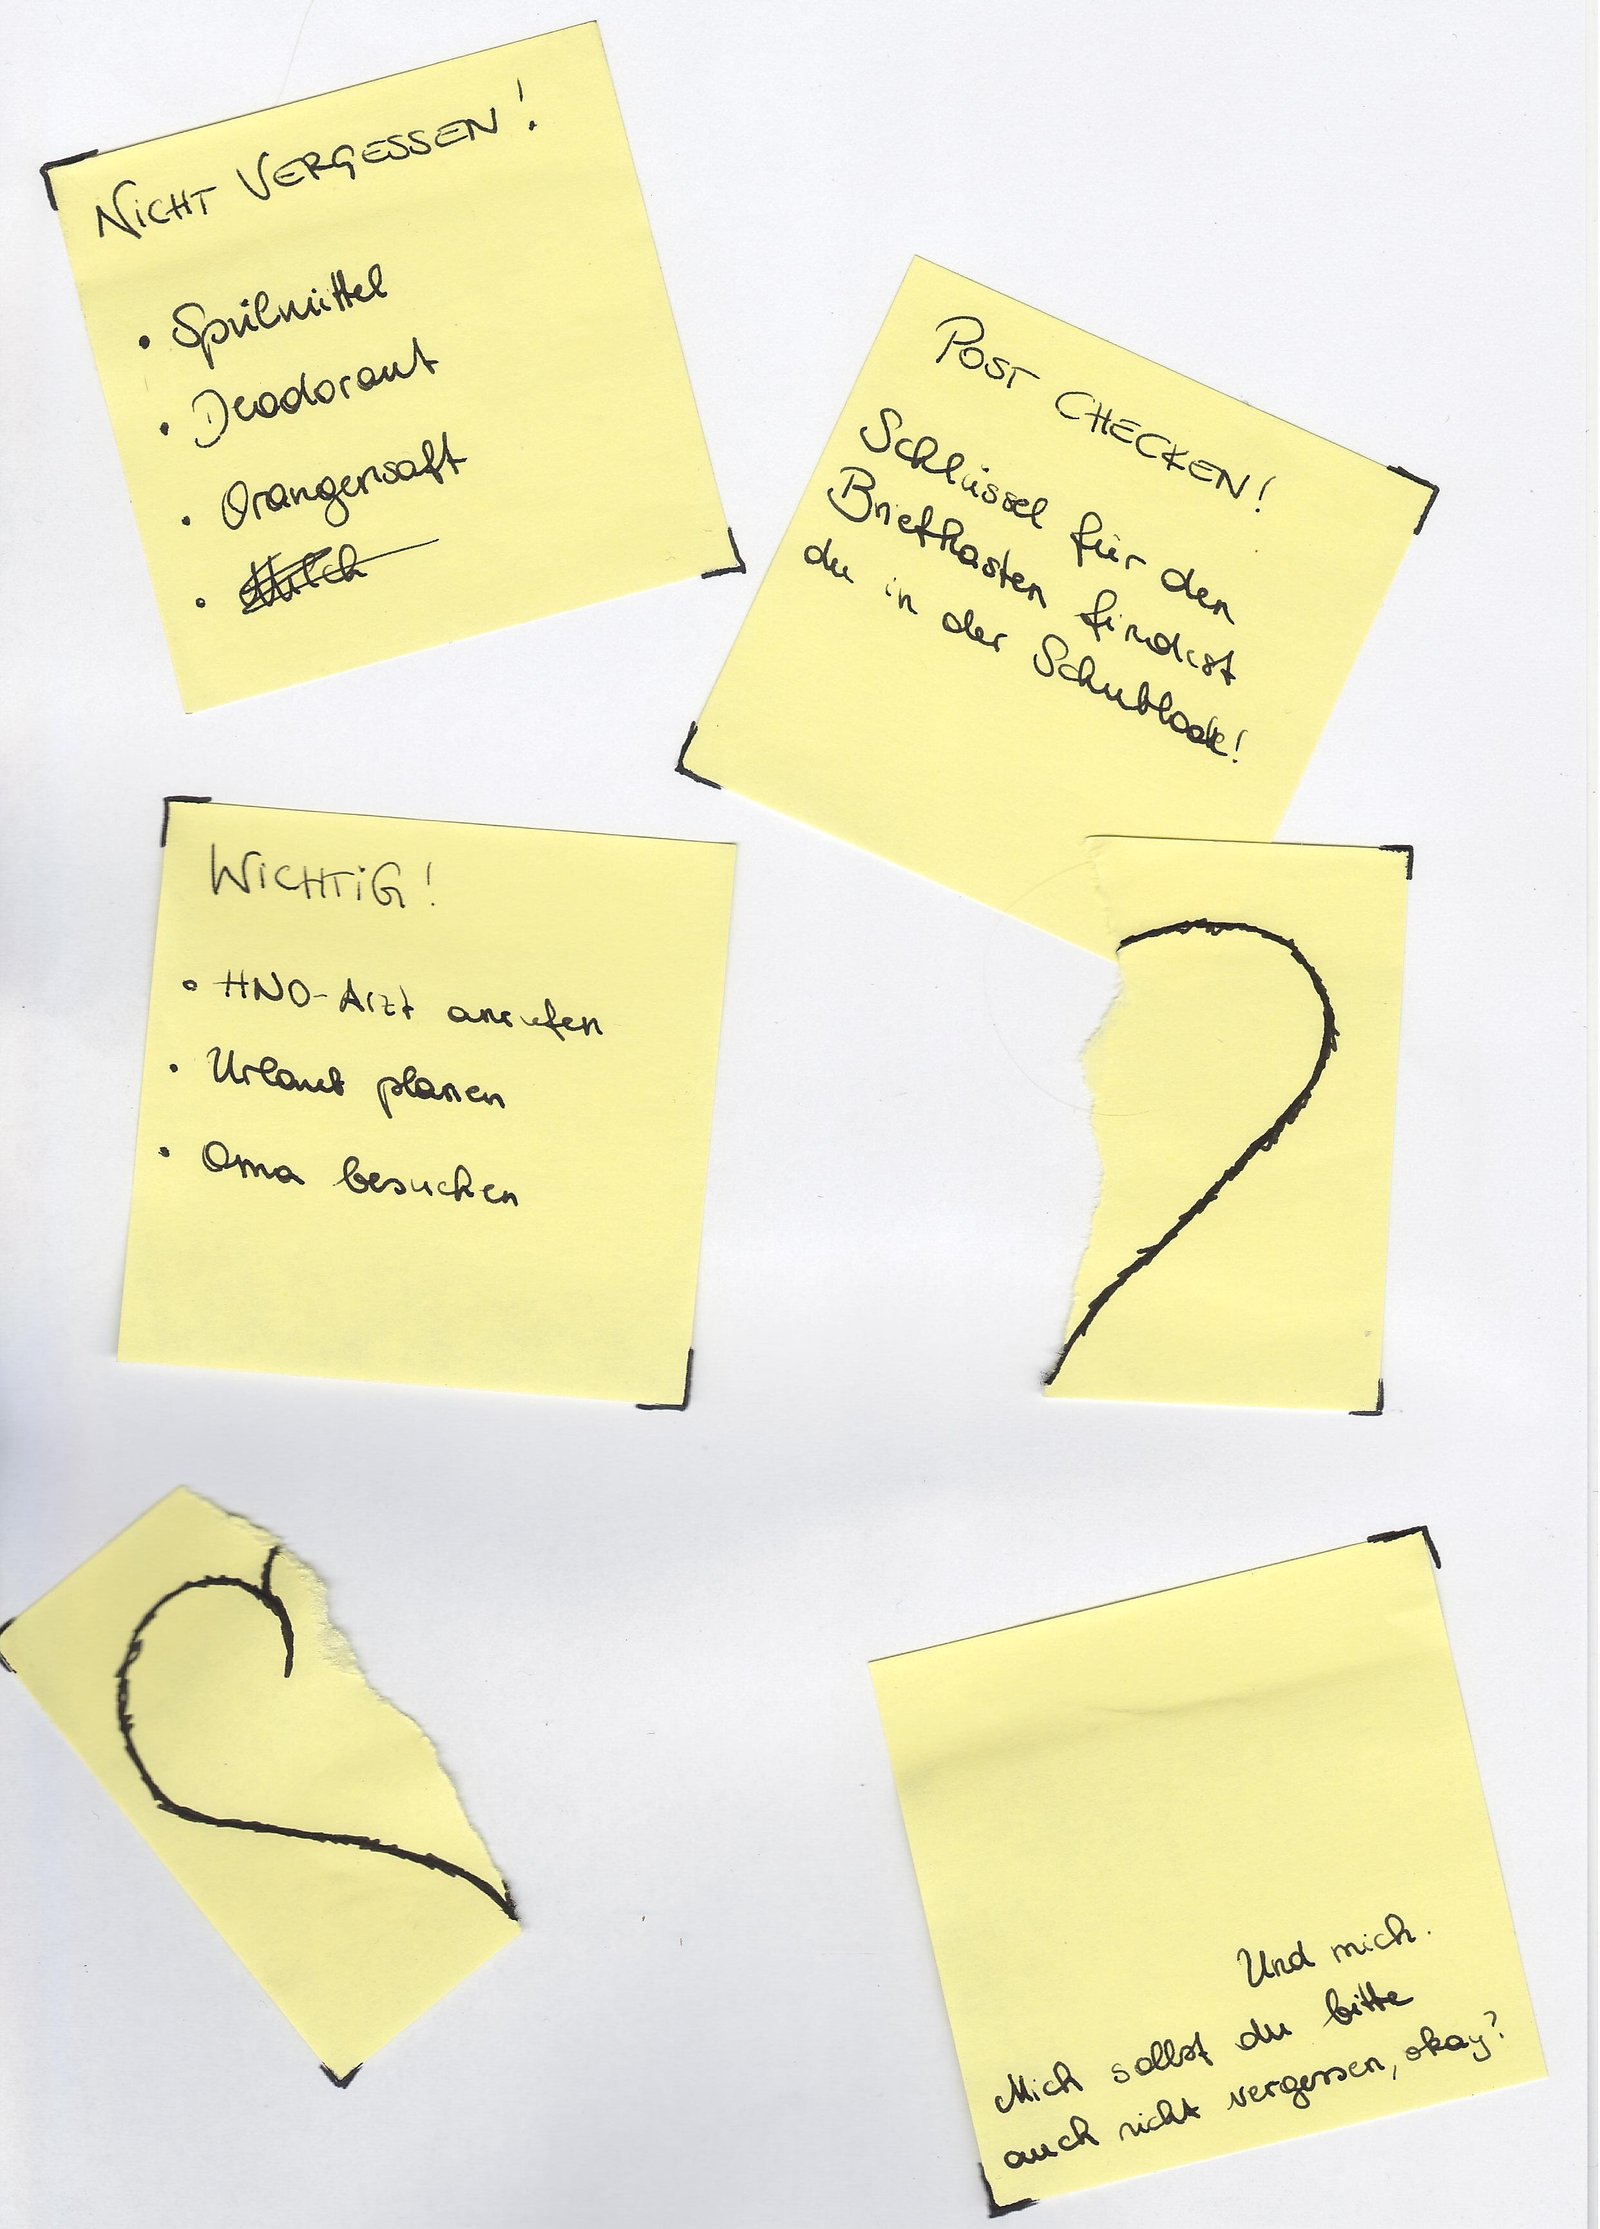 NICHT VERGESSEN!
• Spülmittel
• Deodorant
• Orangensaft
• Milch
POST CHECKEN!
Schlüssel für den
Briefkasten findest
du in der Schublade!
WICHTIG!
• HNO-Arzt anrufen
• Urlaub planen
• Oma besuchen
Und mich.
Mich sollst du bitte
auch nicht vergessen, okay?